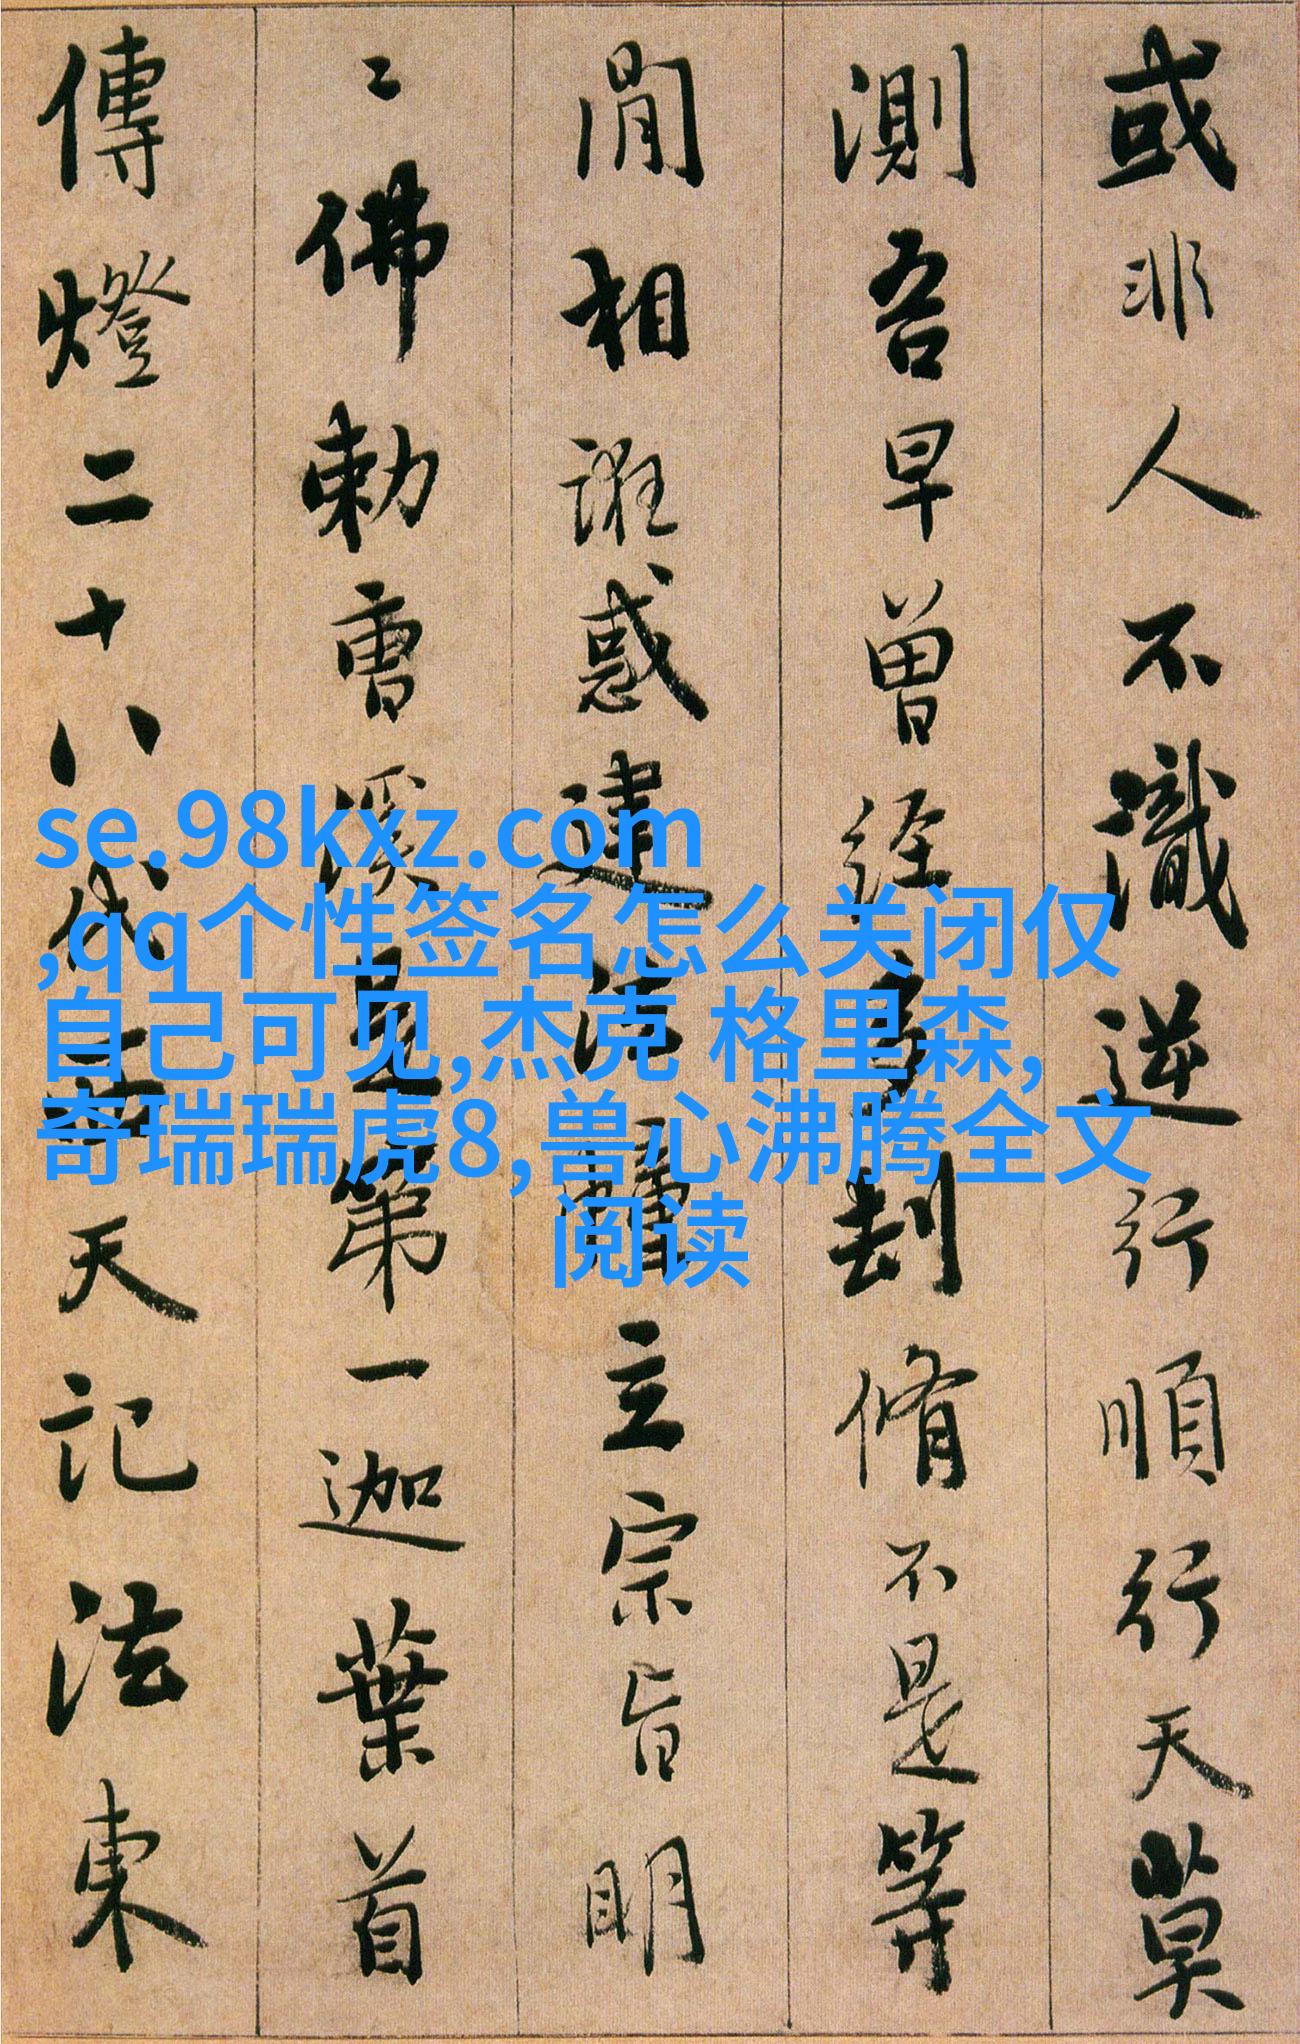 或非人不識逆行順行天莫
測吾早曾経多刼脩不是等
閒相誑惑建法幢立宗旨明
〻佛勅曹溪是第一迦葉首
傳燈二十八代西天記法東
se.98kxz.com
,qq个性签名怎么关闭仅
自己可见,杰克 格里森,
奇瑞瑞虎8,兽心沸腾全文
阅读